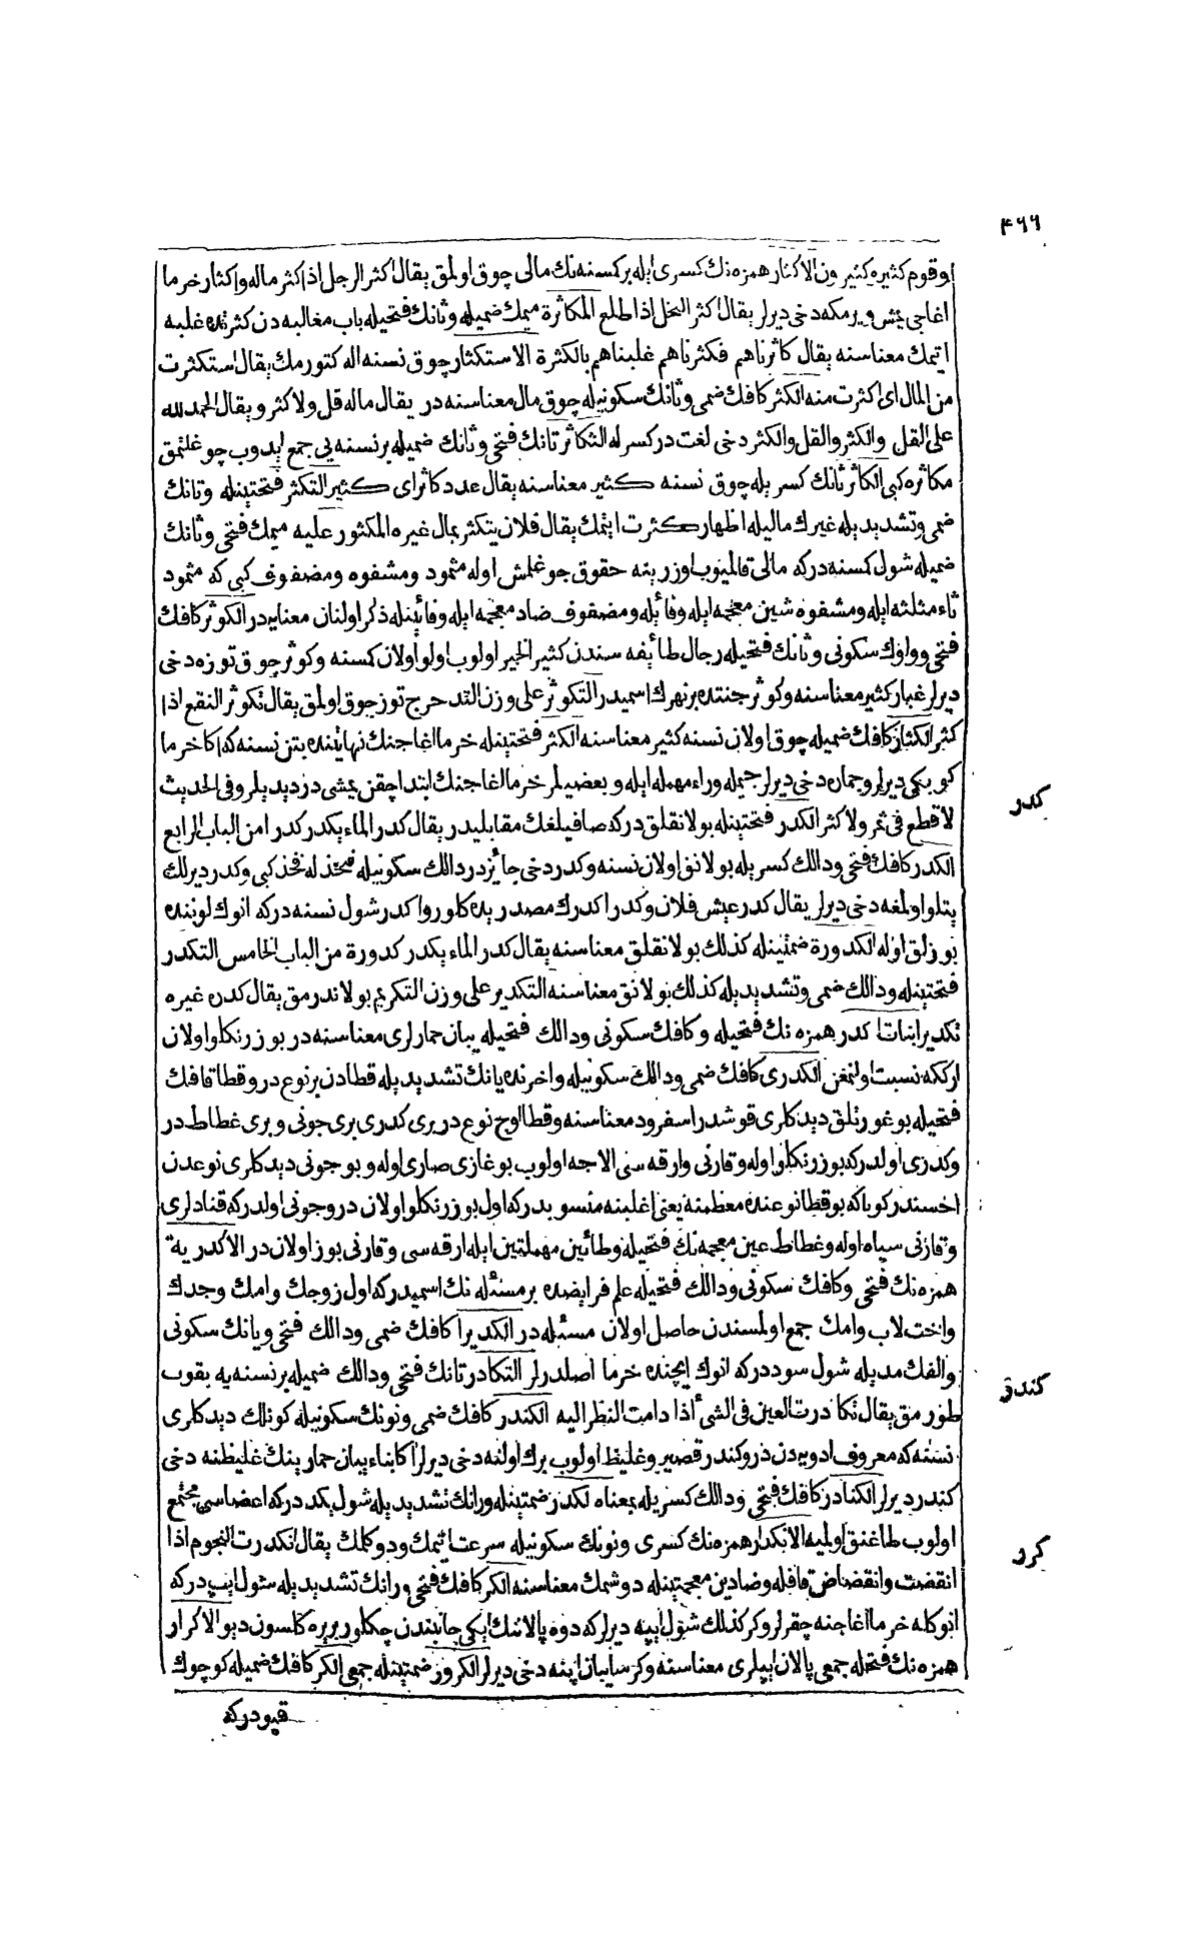 ٤٦٦
اوقوم كثيره كثيرون الاكثار همزه نك كسرى ايله بركسنه نك مالى چوق اولمق يقال اكثر الرجل اذا كثر ماله واكثار خرما
اغاجى يمش ويرمكه دخى ديرلر يقال اكثر النخل اذا اطلع المكاثرة ميمك ضميله وثانك فتحيله باب مغالبه دن كثرتده غلبه
اتمك معناسنه يقال كاثرناهم فكثرناهم غلبناهم بالكثرة الاستكثار چوق نسنه اله كتورمك يقال استكثرت
من المال اى اكثرت منه الكثر كافك ضمى وثانك سكونيله چوق مال معناسنه در يقال ماله قل ولا كثر ويقال الحمد لله
على القل والكثر والقل والكثر دخى لغت در كسرله التكاثر تانك فتحى وثانك ضميله بر نسنه يى جمع ايدوب چوغلتمق
مكاثره كبى الكاثر ثانك كسريله چوق نسنه كثير معناسنه يقال عدد كاثر اى كثير التكثر فتحتينله وثانك
ضمى وتشديديله غيرك ماليله اظهار كثرت ايتمك يقال فلان يتكثر بمال غيره المكثور عليه ميمك فتحى وثانك
ضميله شول كسنه دركه مالى قالميوب اوزرينه حقوق چوغلمش اوله مثمود ومشفوه ومضفوف كبى كه مثمود
ثاء مثلثه ايله ومشفوه شين معجمه ايله وفائله ومضفوف ضاد معجمه ايله وفائينله ذكر اولنان معنايه در الكوثر كافك
فتحى وواوك سكونى وثانك فتحيله رجال طائفه سندن كثير الخير اولوب اولو اولان كسنه وكوثر چوق توزه دخى
ديرلر غبار كثير معناسنه وكوثر جنتده بر نهرك اسميدر التكوثر على وزن التدحرج توز چوق اولمق يقال تكوثر النقع اذا
كثر الكثار كافك ضميله چوق اولان نسنه كثير معناسنه الكثر فتحتينله خرما اغاجنك نهايتنده بتن نسنه كه اكا خرما
كوبكى ديرلر وجمار دخى ديرلر جيمله وراء مهمله ايله وبعضيلر خرما اغاجنك ابتدا چقن يمشى در ديديلر وفى الحديث
لا قطع فى ثمر ولا كثر الكدر فتحتينله بولانقلق دركه صافيلغك مقابليدر يقال كدر الماء يكدر كدرا من الباب الرابع
الكدر كافك فتحى ودالك كسريله بولانق اولان نسنه وكدر دخى جائزدر دالك سكونيله فخذله فخذ كبى وكدر ديرلك
يتلو اولمغه دخى ديرلر يقال كدر عيش فلان وكدر اكدرك مصدر يده كلور واكدر شول نسنه دركه انوك لوننده
بوزلق اوله الكدورة ضمتينله كذلك بولانقلق معناسنه يقال كدر الماء يكدر كدورة من الباب الخامس التكدر
فتحتينله ودالك ضمى وتشديديله كذلك بولانق معناسنه التكدير على وزن التكريم بولاندرمق يقال كدره غيره
تكديرا بنات اكدر همزه نك فتحيله وكافك سكونى ودالك فتحيله يبان حمارلرى معناسنه در بوز رنكلو اولان
ارككه نسبت اولنمغن الكدرى كافك ضمى ودالك سكونيله واخرنده يانك تشديديله قطادن بر نوع در وقطا قافك
فتحيله بوغورتلق ديدكلرى قوشدر اسفرود معناسنه وقطا اوچ نوع در برى كدرى برى جونى وبرى غطاط در
وكدرى اولدركه بوز رنكلو اوله وقارنى وارقه سى الاجه اولوب بوغازى صارى اوله وبو جونى ديدكلرى نوعدن
اخسندر كويا كه بو قطا نوعنده معظمنه يعنى اغلبنه منسوبدركه اول بوز رنكلو اولان در وجونى اولدركه قنادلرى
وقارنى سياه اوله وغطاط عين معجمه نك فتحيله وطائين مهملتين ايله ارقه سى وقارنى بوز اولان در الاكدرية
همزه نك فتحى وكافك سكونى ودالك فتحيله علم فرايضده بر مسئله نك اسميدركه اول زوجك وامك وجدك
واخت لاب وامك جمع اولمسندن حاصل اولان مسئله در الكديرا كافك ضمى ودالك فتحى ويانك سكونى
والفك مديله شول سوددركه انوك ايچنده خرما اصلدرلر التكادر تانك فتحى ودالك ضميله بر نسنه يه بقوب
طورمق يقال تكادرت العين فى الشئ اذا دامت النظر اليه الكندر كافك ضمى ونونك سكونيله كونلك ديدكلرى
نسنه كه معروف ادويه دن در وكندر قصير وغليظ اولوب برك اولنه دخى ديرلر اكا بناء يبان حمارينك غليظنه دخى
كندر ديرلر الكنادر كافك فتحى ودالك كسريله بمعناه لكدر ضمتينله ورانك تشديديله شول يكددركه اعضاسى مجتمع
اولوب طاغنق اولميه الانكدار همزه نك كسرى ونونك سكونيله سرعت ايتمك ودوكلمك يقال انكدرت النجوم اذا
انقضت وانقضاض قافله وضادين معجمتينله دوشمك معناسنه الكر كافك فتحى ورانك تشديديله شول ايپ دركه
انوكله خرما اغاجنه چقرلر وكر كذلك شول ايپه ديرلركه دوه پالاننك ايكى جانبندن چكلور بربره كلسون ديو الاكرار
همزه نك فتحله جمعى پالان ايپلرى معناسنه وكر سايبان ايپنه دخى ديرلر الكرور ضمتينله جمعى الكر كافك ضميله كوچوك
قيودركه
كدر
كندر
كرر